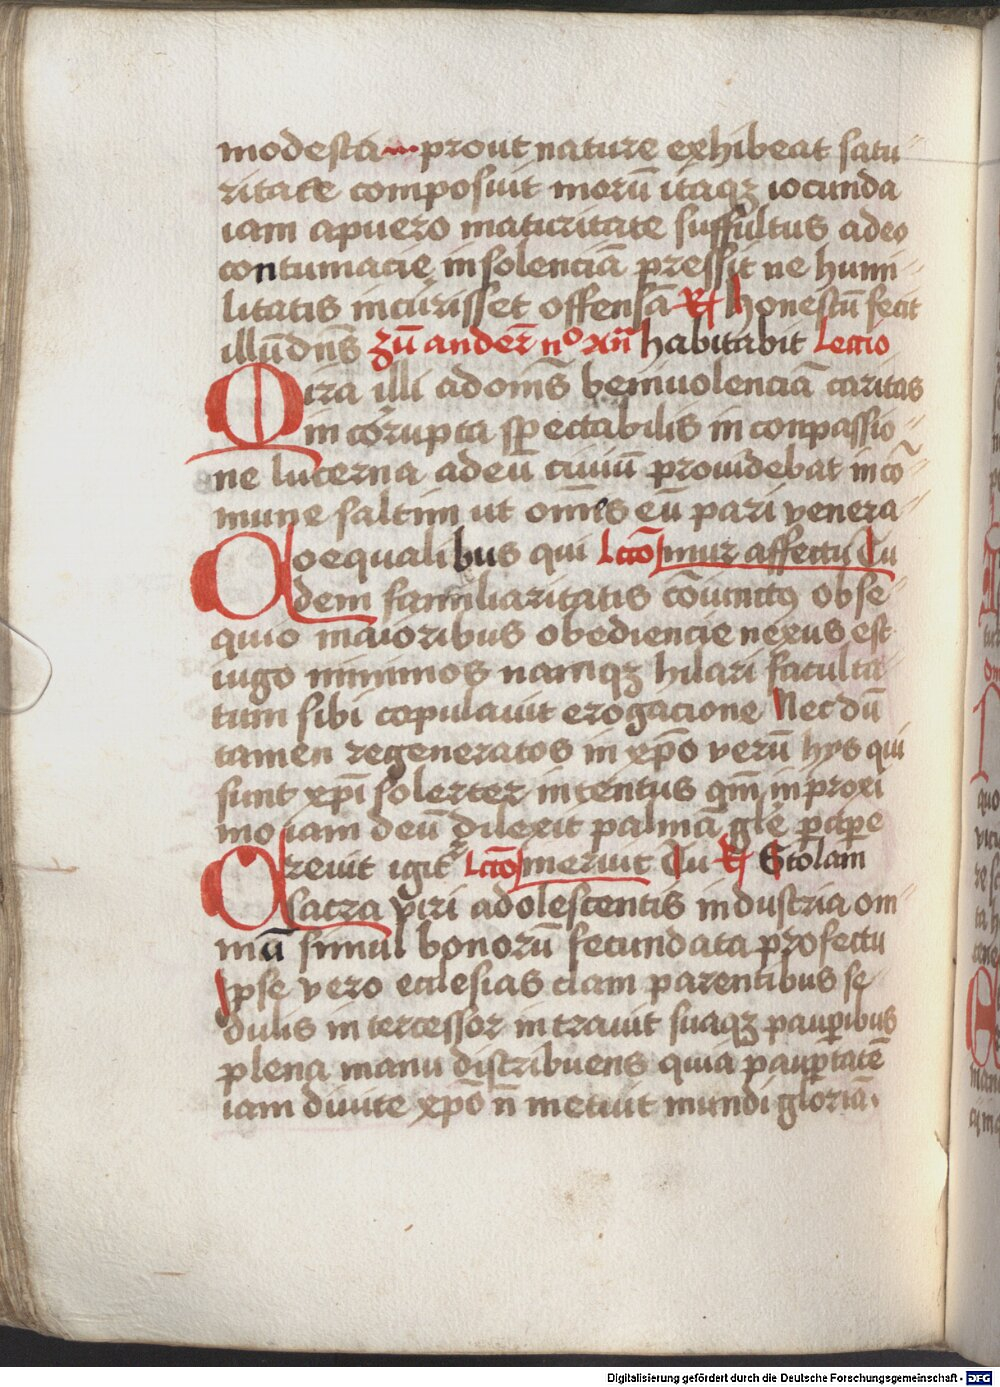 modesta prout nature exhibeat satu
ritate composuit morū itaqꝫ iocunda
iam apuero maturitate suffultus adeo
contumacie insolenciā pressit ne humi
litatis incurisset offensā ℟ honestū fecit
illū dn̄s zū anderē nᵒ xn̄ habitabit Leccio
Mira illi adomīs beniuolenciā caritas
in corrupta spectabilis in conpassio
ne lucerna adeū ciuiū prouidebat in cō
mune saltim ut omīs eū pari venera
Coequalibus qui Lccō mur affectu Tu
dem familiaritatis cōiunctꝯ obse
quio maioribus obediencie nexus est
iugo minimos namqꝫ hilari faculta
tum sibi copulauit erogacione Nec dū
tamen regeneratos in xp̄o verū hys qui
sunt xp̄i solerter intentus qm̄ in proxi
mo iam deū dilexit palmā gl̄e ꝑcipe
Creuit igit᷑ Lccō meruit Tu ℟ Stolam
lacra viri adolescentis industria om
niū simul bonorū fecundata profectu
Ipse vero ecclesias clam parentibus se
dulis intercessor intrauit suaqꝫ pauꝑibus
plena manu distribuens quia pauꝑtatē
iam diuite xp̄o n̄ metuit mundi gloriā.
Digitalisierung gefördert durch die Deutsche Forschungsgemeinschaft - DFG